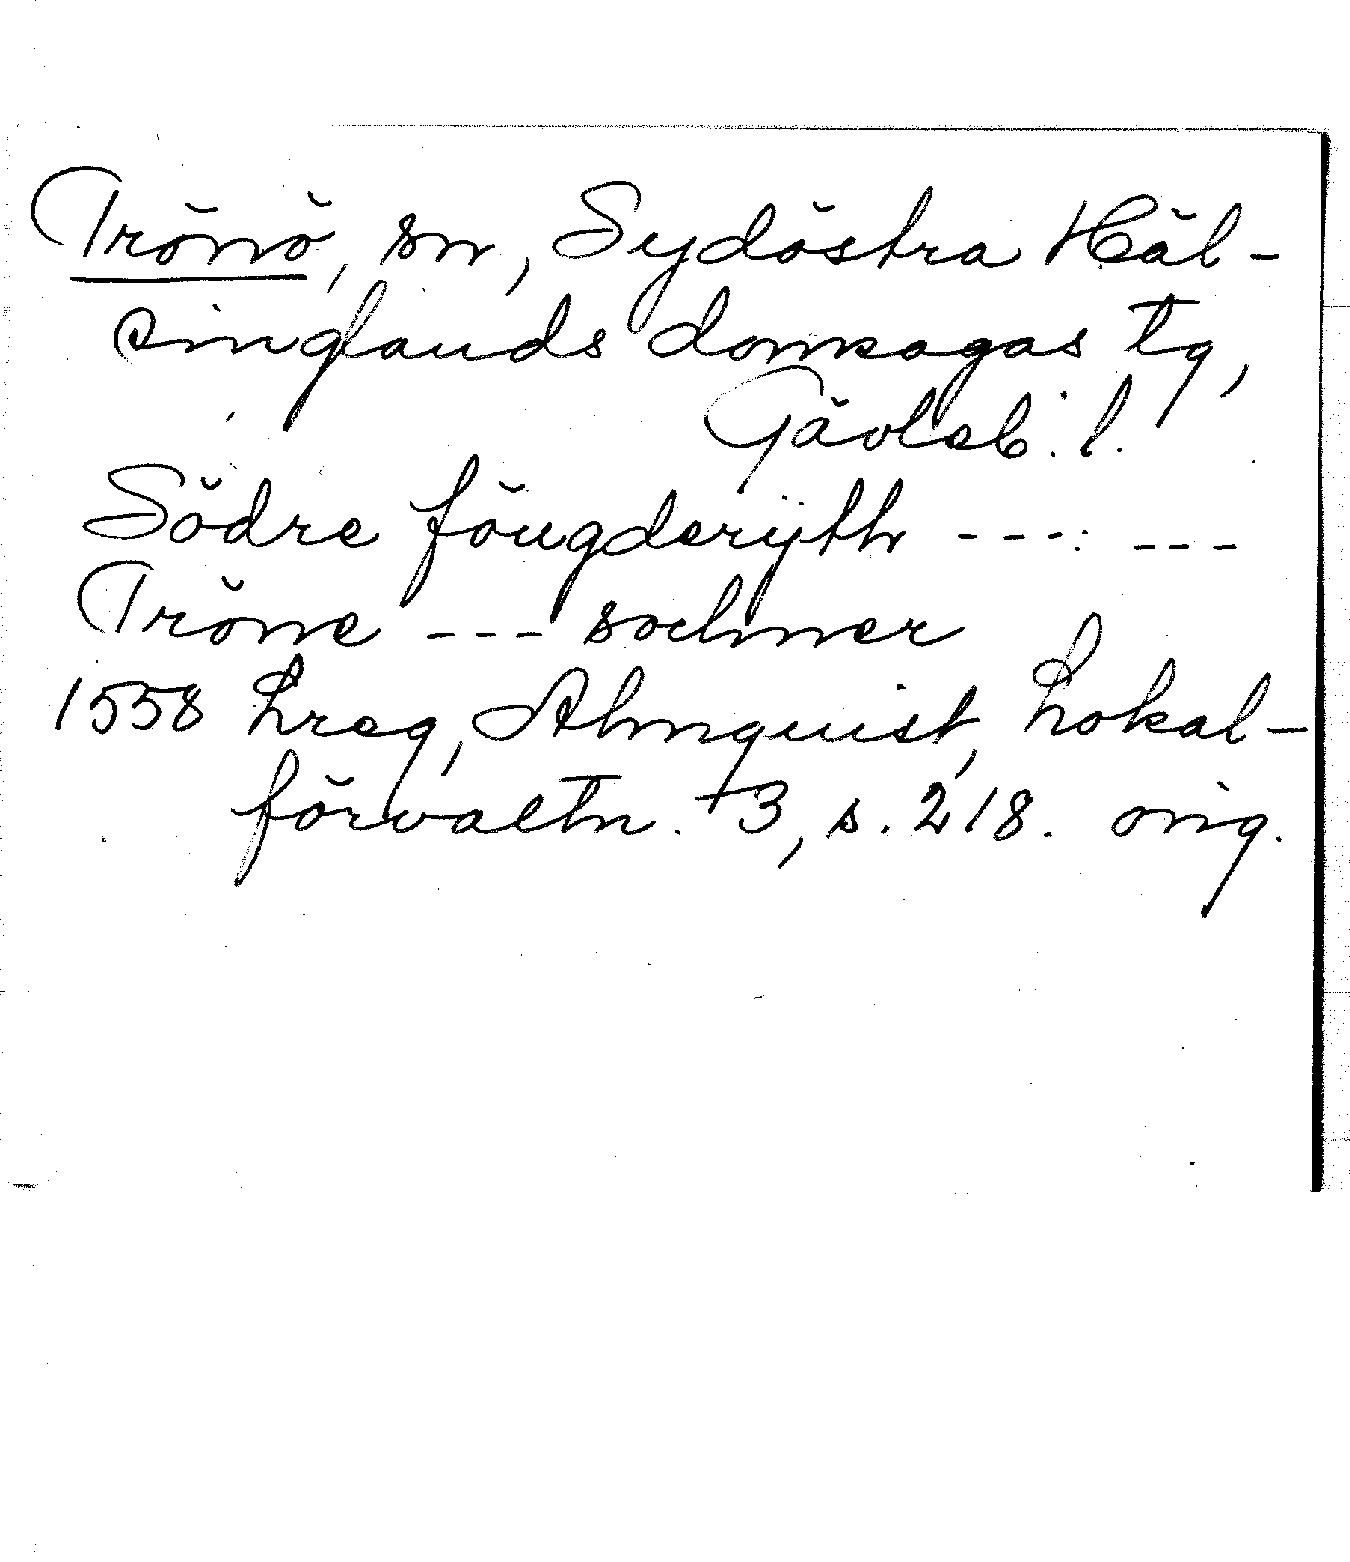 Trönö, sn, Sydöstra Häl-
singlands domsagas tg,
Gävleb. l.
Södre föugderijth ---: ---
Tröne --- sochner
1558 Lreg, Almquist, Lokal-
förvaltn. 3, s. 218. orig.